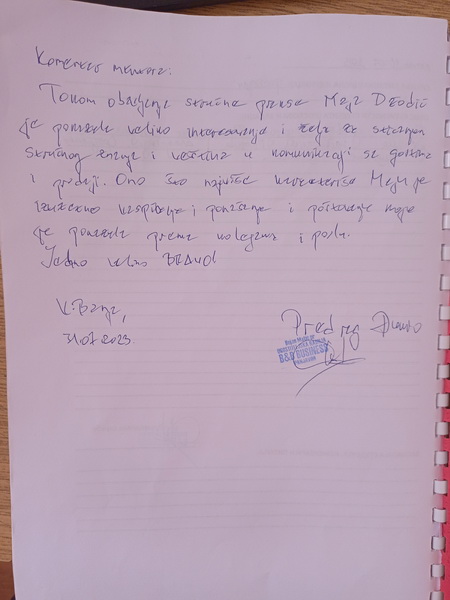 Komentar mentora:
Tokom obavljanja stručne prakse Maja
je pokazala veliko interesovanje i želju za sticanjem
stručnog znanja i veština u komunikaciji sa gostima
i prodaji. Ono što najviše karakteriše Maju je
vaspitanje i ponašanje i poštovanje koje
je pokazala prema kolegama i poslu.
Jedno veliko BRAVO!
V. Banja,
31.07.2023
Predrag
B&D BUSINESS